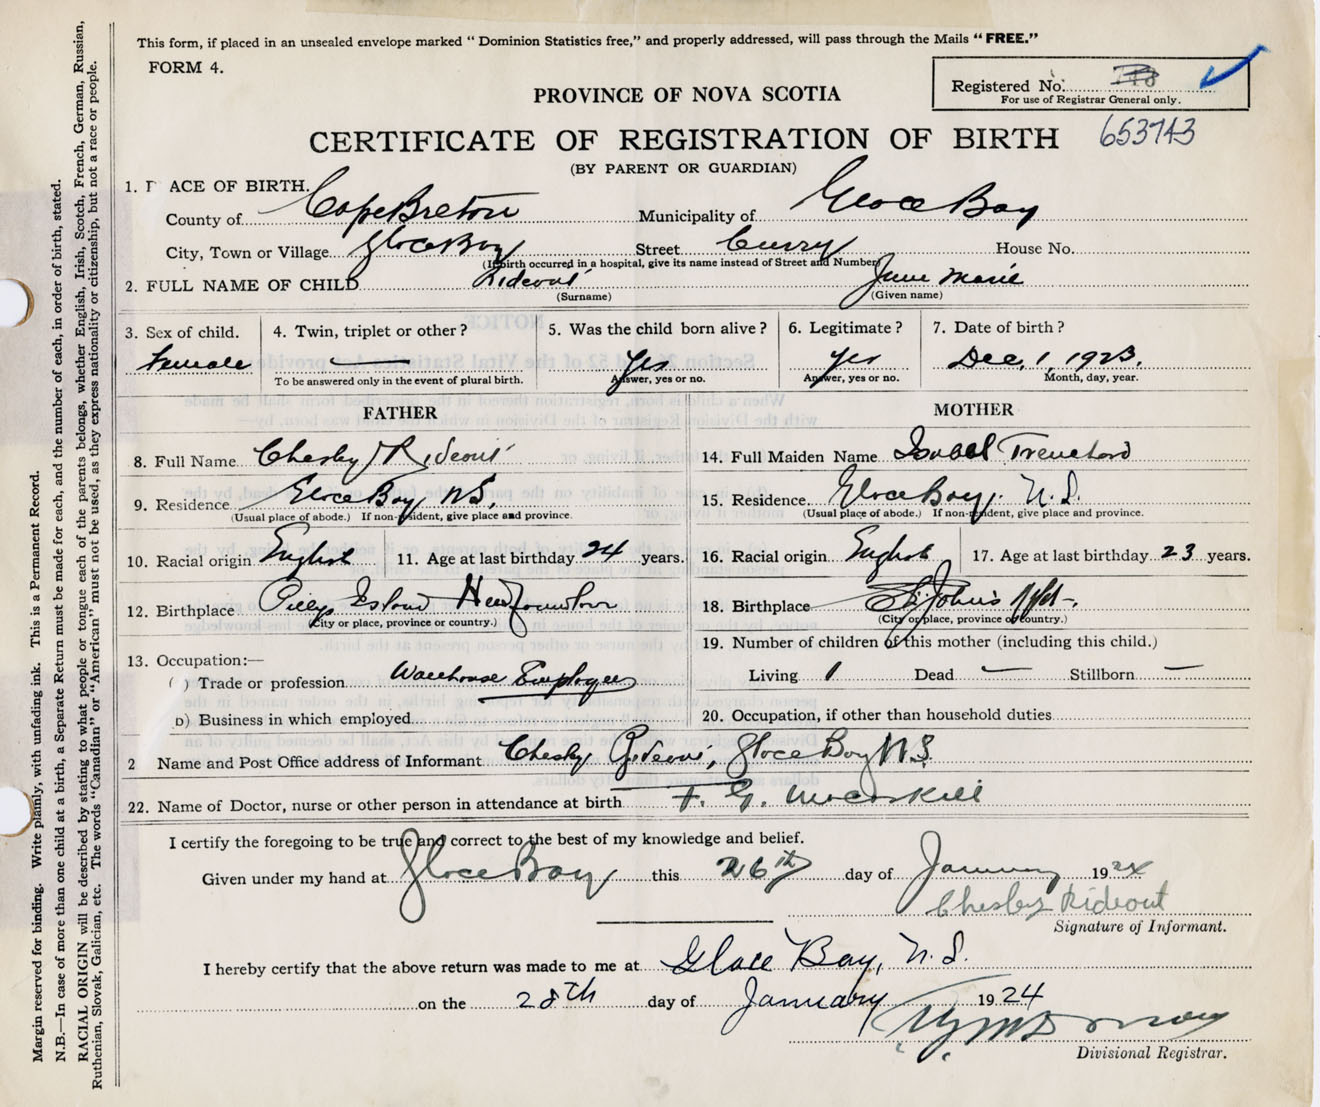 This form, if placed in an unsealed envelope marked "Dominion Statistics free," and properly addressed, will pass through the Mails "FREE."
FORM 4.
Registered No.
For use of Registrar General only.
PROVINCE OF NOVA SCOTIA
653743
CERTIFICATE OF REGISTRATION OF BIRTH
(BY PARENT OR GUARDIAN)
1. P ACE OF BIRTH.
County of Cape Breton Municipality of Glace Bay
City, Town or Village Glace Bay Street Curry House No.
(If birth occurred in a hospital, give its name instead of Street and Number)
2. FULL NAME OF CHILD Rideout June Marie
(Surname) (Given name)
3. Sex of child. 4. Twin, triplet or other? 5. Was the child born alive? 6. Legitimate? 7. Date of birth?
Female — Yes Yes Dec. 1, 1923.
To be answered only in the event of plural birth. Answer, yes or no. Answer, yes or no. Month, day, year.
FATHER MOTHER
8. Full Name Chesley Rideout 14. Full Maiden Name Isabel Trenchard
9. Residence Glace Bay, N.S. 15. Residence Glace Bay, N.S.
(Usual place of abode.) If non-resident, give place and province. (Usual place of abode.) If non-resident, give place and province.
10. Racial origin English 11. Age at last birthday 24 years. 16. Racial origin English 17. Age at last birthday 23 years.
12. Birthplace Island Newfoundland 18. Birthplace St. John's Nfld.
(City or place, province or country.) (City or place, province or country.)
19. Number of children of this mother (including this child.)
13. Occupation:—
( ) Trade or profession Warehouse Employee Living 1 Dead — Stillborn —
b) Business in which employed 20. Occupation, if other than household duties
2 Name and Post Office address of Informant Chesley Rideout, Glace Bay N.S.
22. Name of Doctor, nurse or other person in attendance at birth F. G.
I certify the foregoing to be true and correct to the best of my knowledge and belief.
Given under my hand at Glace Bay this 26th day of January 1924
Chesley Rideout
Signature of Informant.
I hereby certify that the above return was made to me at Glace Bay, N.S.
on the 28th day of January 1924
Divisional Registrar.
Margin reserved for binding. Write plainly, with unfading ink. This is a Permanent Record.
N.B.—In case of more than one child at a birth, a Separate Return must be made for each, and the number of each, in order of birth, stated.
RACIAL ORIGIN will be described by stating to what people or tongue each of the parents belongs, whether English, Irish, Scotch, French, German, Russian,
Ruthenian, Slovak, Galician, etc. The words "Canadian" or "American" must not be used, as they express nationality or citizenship, but not a race or people.